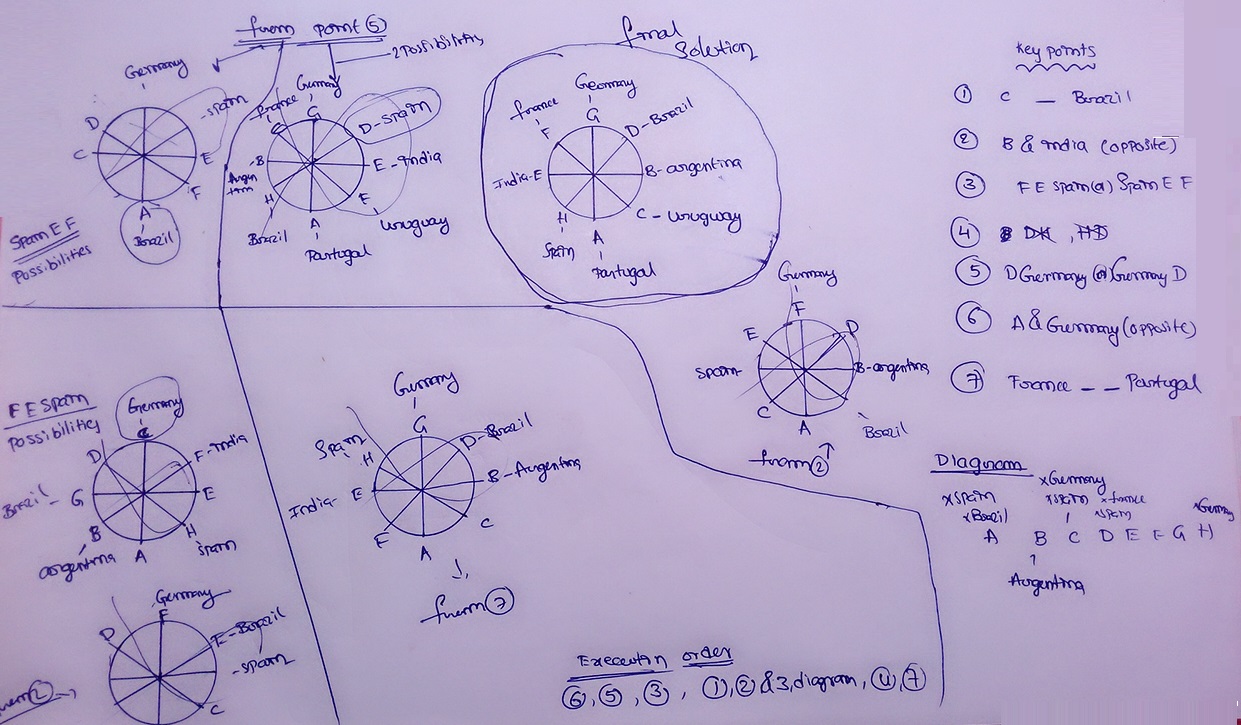 from point (5)
2 Possibilities
Germany
D
- Spain
C
E
F
A
Brazil
Spain E F
Possibilities
France
Germany
G
D - Spain
- B
E - India
H
F
Brazil
A
Uruguay
Portugal
final
Solution
Germany
France
G
F
D - Brazil
India - E
B - argentina
H
C - Uruguay
Spain
A
Portugal
Key points
① C _ Brazil
② B & India (opposite)
③ F E Spain (or) Spain E F
④
⑤ D Germany (or) Germany D
⑥ A & Germany (opposite)
⑦ France _ _ Portugal
Germany
F
E
D
Spain
B - argentina
C
A
Brazil
from ②
F E Spain
Possibilities
Germany
D
F - India
Brazil - G
E
B
H
argentina
A
Spain
Germany
G
Spain
D - Brazil
H
B - Argentina
India - E
C
F
A
from ⑦
Diagram
x Germany
x Spain
x Spain
x france
x Brazil
x Spain
x Germany
A B C D E F G H
Argentina
Germany
F
D
E - Brazil
- Spain
C
Execution order
⑥, ⑤, ③, ①, ② & 3, diagram, ④, ⑦